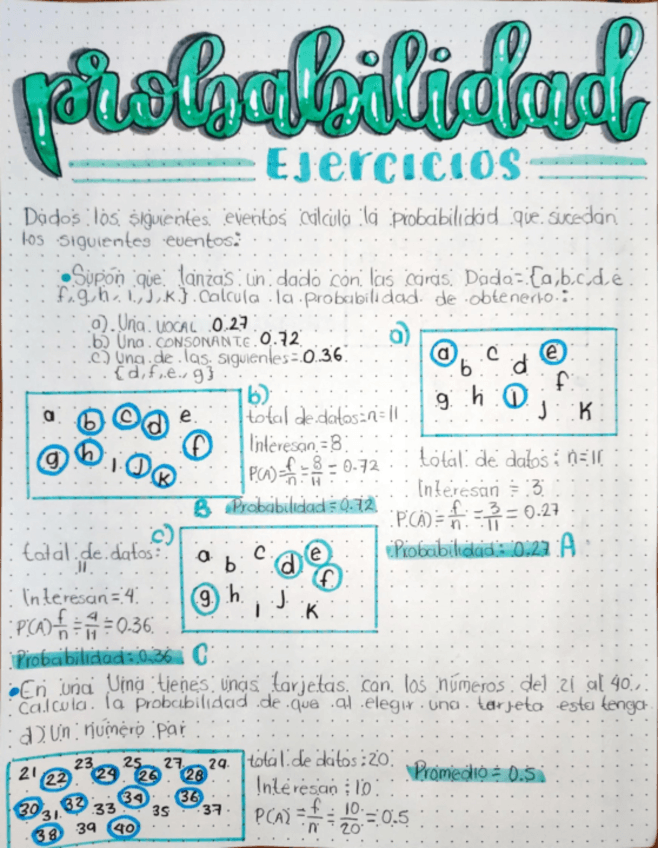 probabilidad
Ejercicios
Dados los siguientes eventos calcula la probabilidad que sucedan
los siguientes eventos:
•Supón que lanzas un dado con las caras Dado={a,b,c,d,e
f,g,h,i,j,k} Calcula la probabilidad de obtenerlo:
a) Una VOCAL 0.27
b) Una CONSONANTE 0.72
c) Una de las siguientes=0.36
{d,f,e,g}
a)
a b c d e
f g h i j k
b)
a b c d e
f g h i j k
total de datos=n=11
Interesan=8
P(A)=f/n=8/11=0.72
B Probabilidad=0.72
total de datos: n=11
Interesan = 3
P(A)=f/n=3/11=0.27
Probabilidad=0.27 A
c)
total de datos:
11
Interesan=4
P(A)f/n=4/11=0.36
Probabilidad=0.36 C
a b c d e
f g h i j k
•En una Urna tienes unas tarjetas con los números del 21 al 40.
Calcula la probabilidad de que al elegir una tarjeta esta tenga
d) Un número par
21 22 23 24 25 26 27 28 29
30 31 32 33 34 35 36 37
38 39 40
total de datos:20
Interesan:10
P(A)=f/n=10/20=0.5
Promedio=0.5